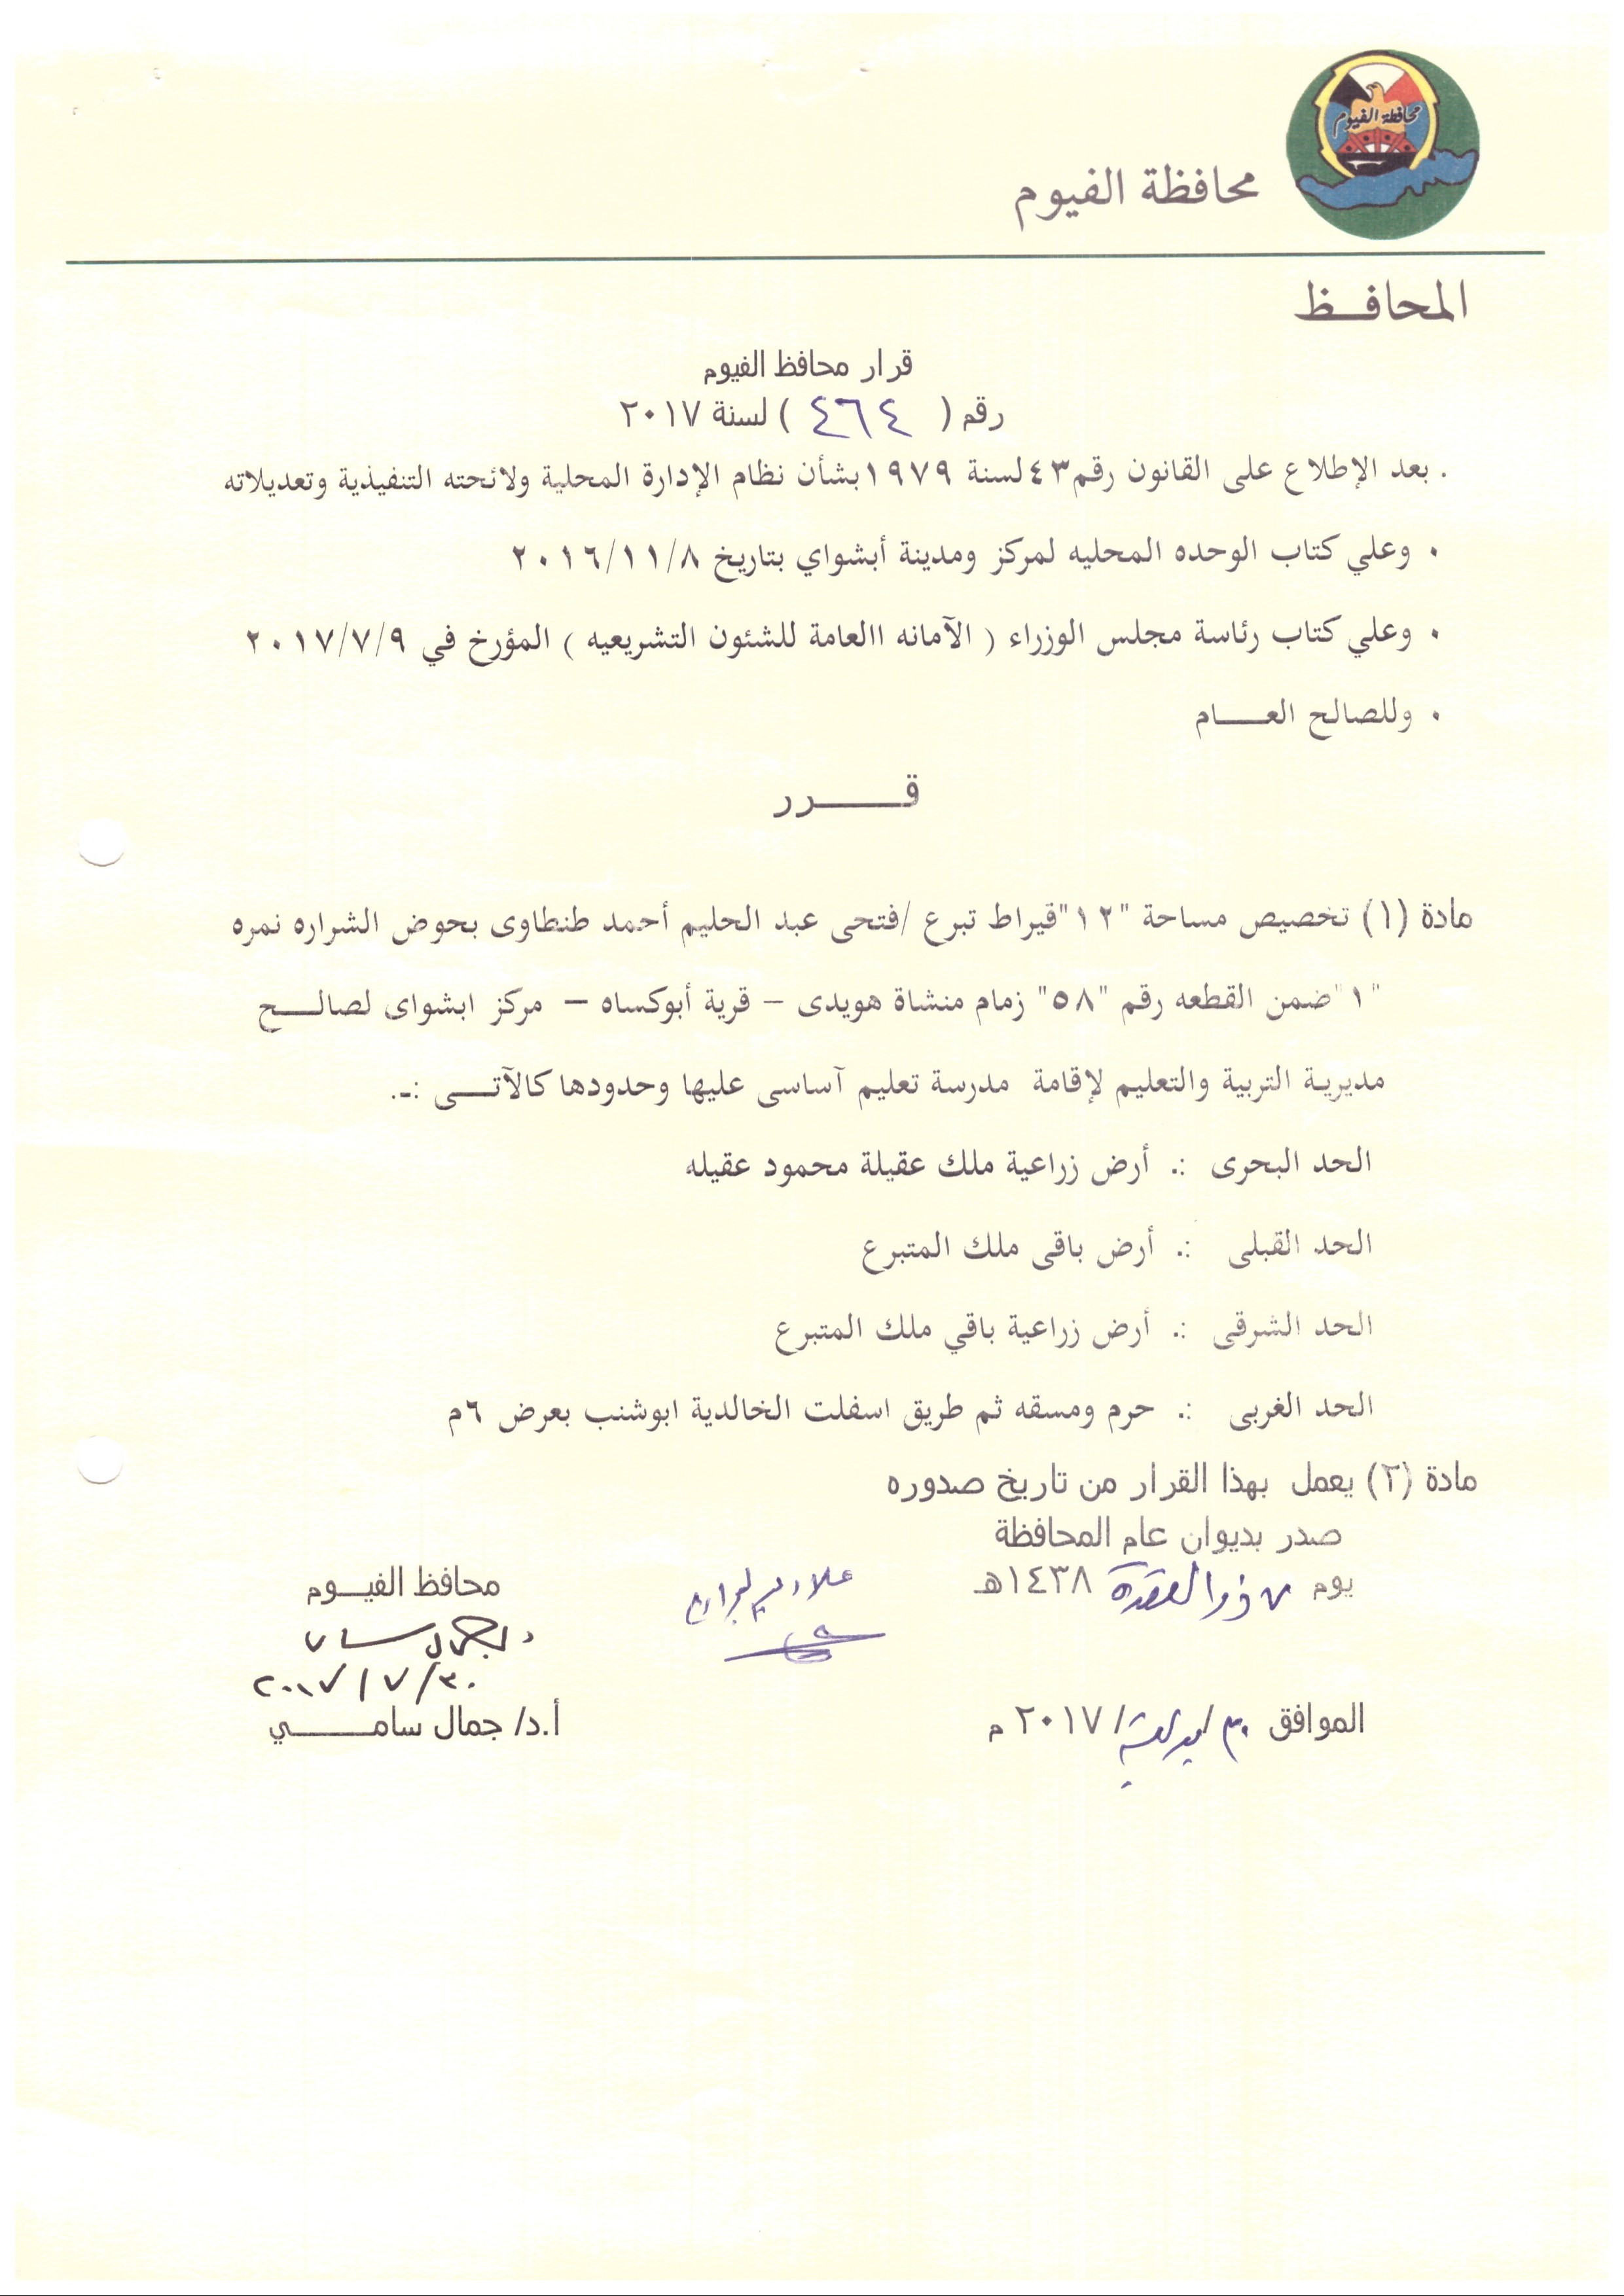 محافظة الفيوم
محافظة الفيوم
المحافــظ
قرار محافظ الفيوم
رقم ( ٤٦٤ ) لسنة ٢٠١٧
. بعد الإطلاع على القانون رقم٤٣لسنة ١٩٧٩بشأن نظام الإدارة المحلية ولائحته التنفيذية وتعديلاته
• وعلي كتاب الوحده المحليه لمركز ومدينة أبشواي بتاريخ ٢٠١٦/١١/٨
• وعلي كتاب رئاسة مجلس الوزراء ( الآمانه االعامة للشئون التشريعيه ) المؤرخ في ٢٠١٧/٧/٩
• وللصالح العـــام
قــــرر
مادة (١) تخصيص مساحة "١٢"قيراط تبرع /فتحى عبد الحليم أحمد طنطاوى بحوض الشراره نمره
"١"ضمن القطعه رقم "٥٨" زمام منشاة هويدى – قرية أبوكساه – مركز ابشواى لصالــح
مديرية التربية والتعليم لإقامة مدرسة تعليم آساسى عليها وحدودها كالآتــى :ـ.
الحد البحرى :. أرض زراعية ملك عقيلة محمود عقيله
الحد القبلى :. أرض باقى ملك المتبرع
الحد الشرقى :. أرض زراعية باقي ملك المتبرع
الحد الغربى :. حرم ومسقه ثم طريق اسفلت الخالدية ابوشنب بعرض ٦م
مادة (٢) يعمل بهذا القرار من تاريخ صدوره
صدر بديوان عام المحافظة
يوم ٧ ذو القعدة ١٤٣٨هـ
محافظ الفيــوم
٢٠١٧/٧/٣٠
الموافق ٣٠/يوليو/٢٠١٧ م
أ.د/ جمال سامــــي